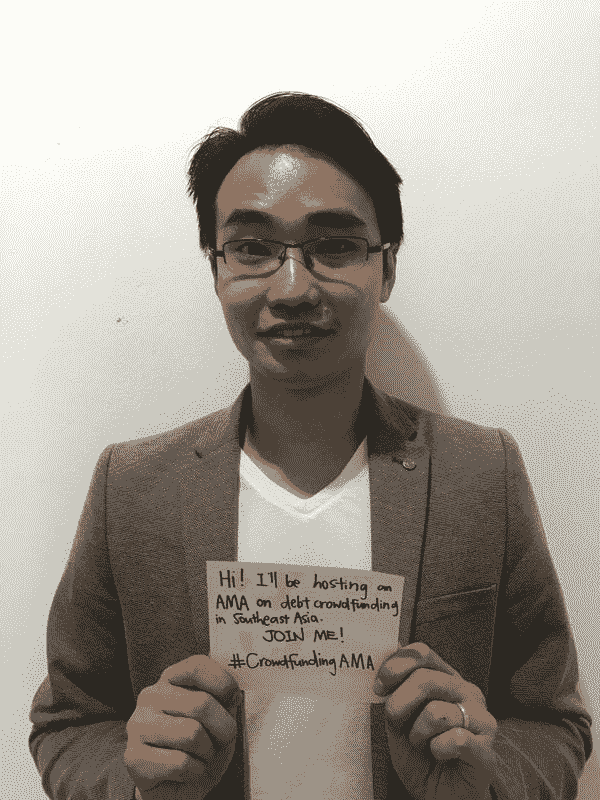 Hi! I'll be hosting an
AMA on debt crowdfunding
in Southeast Asia.
JOIN ME!
#CrowdfundingAMA